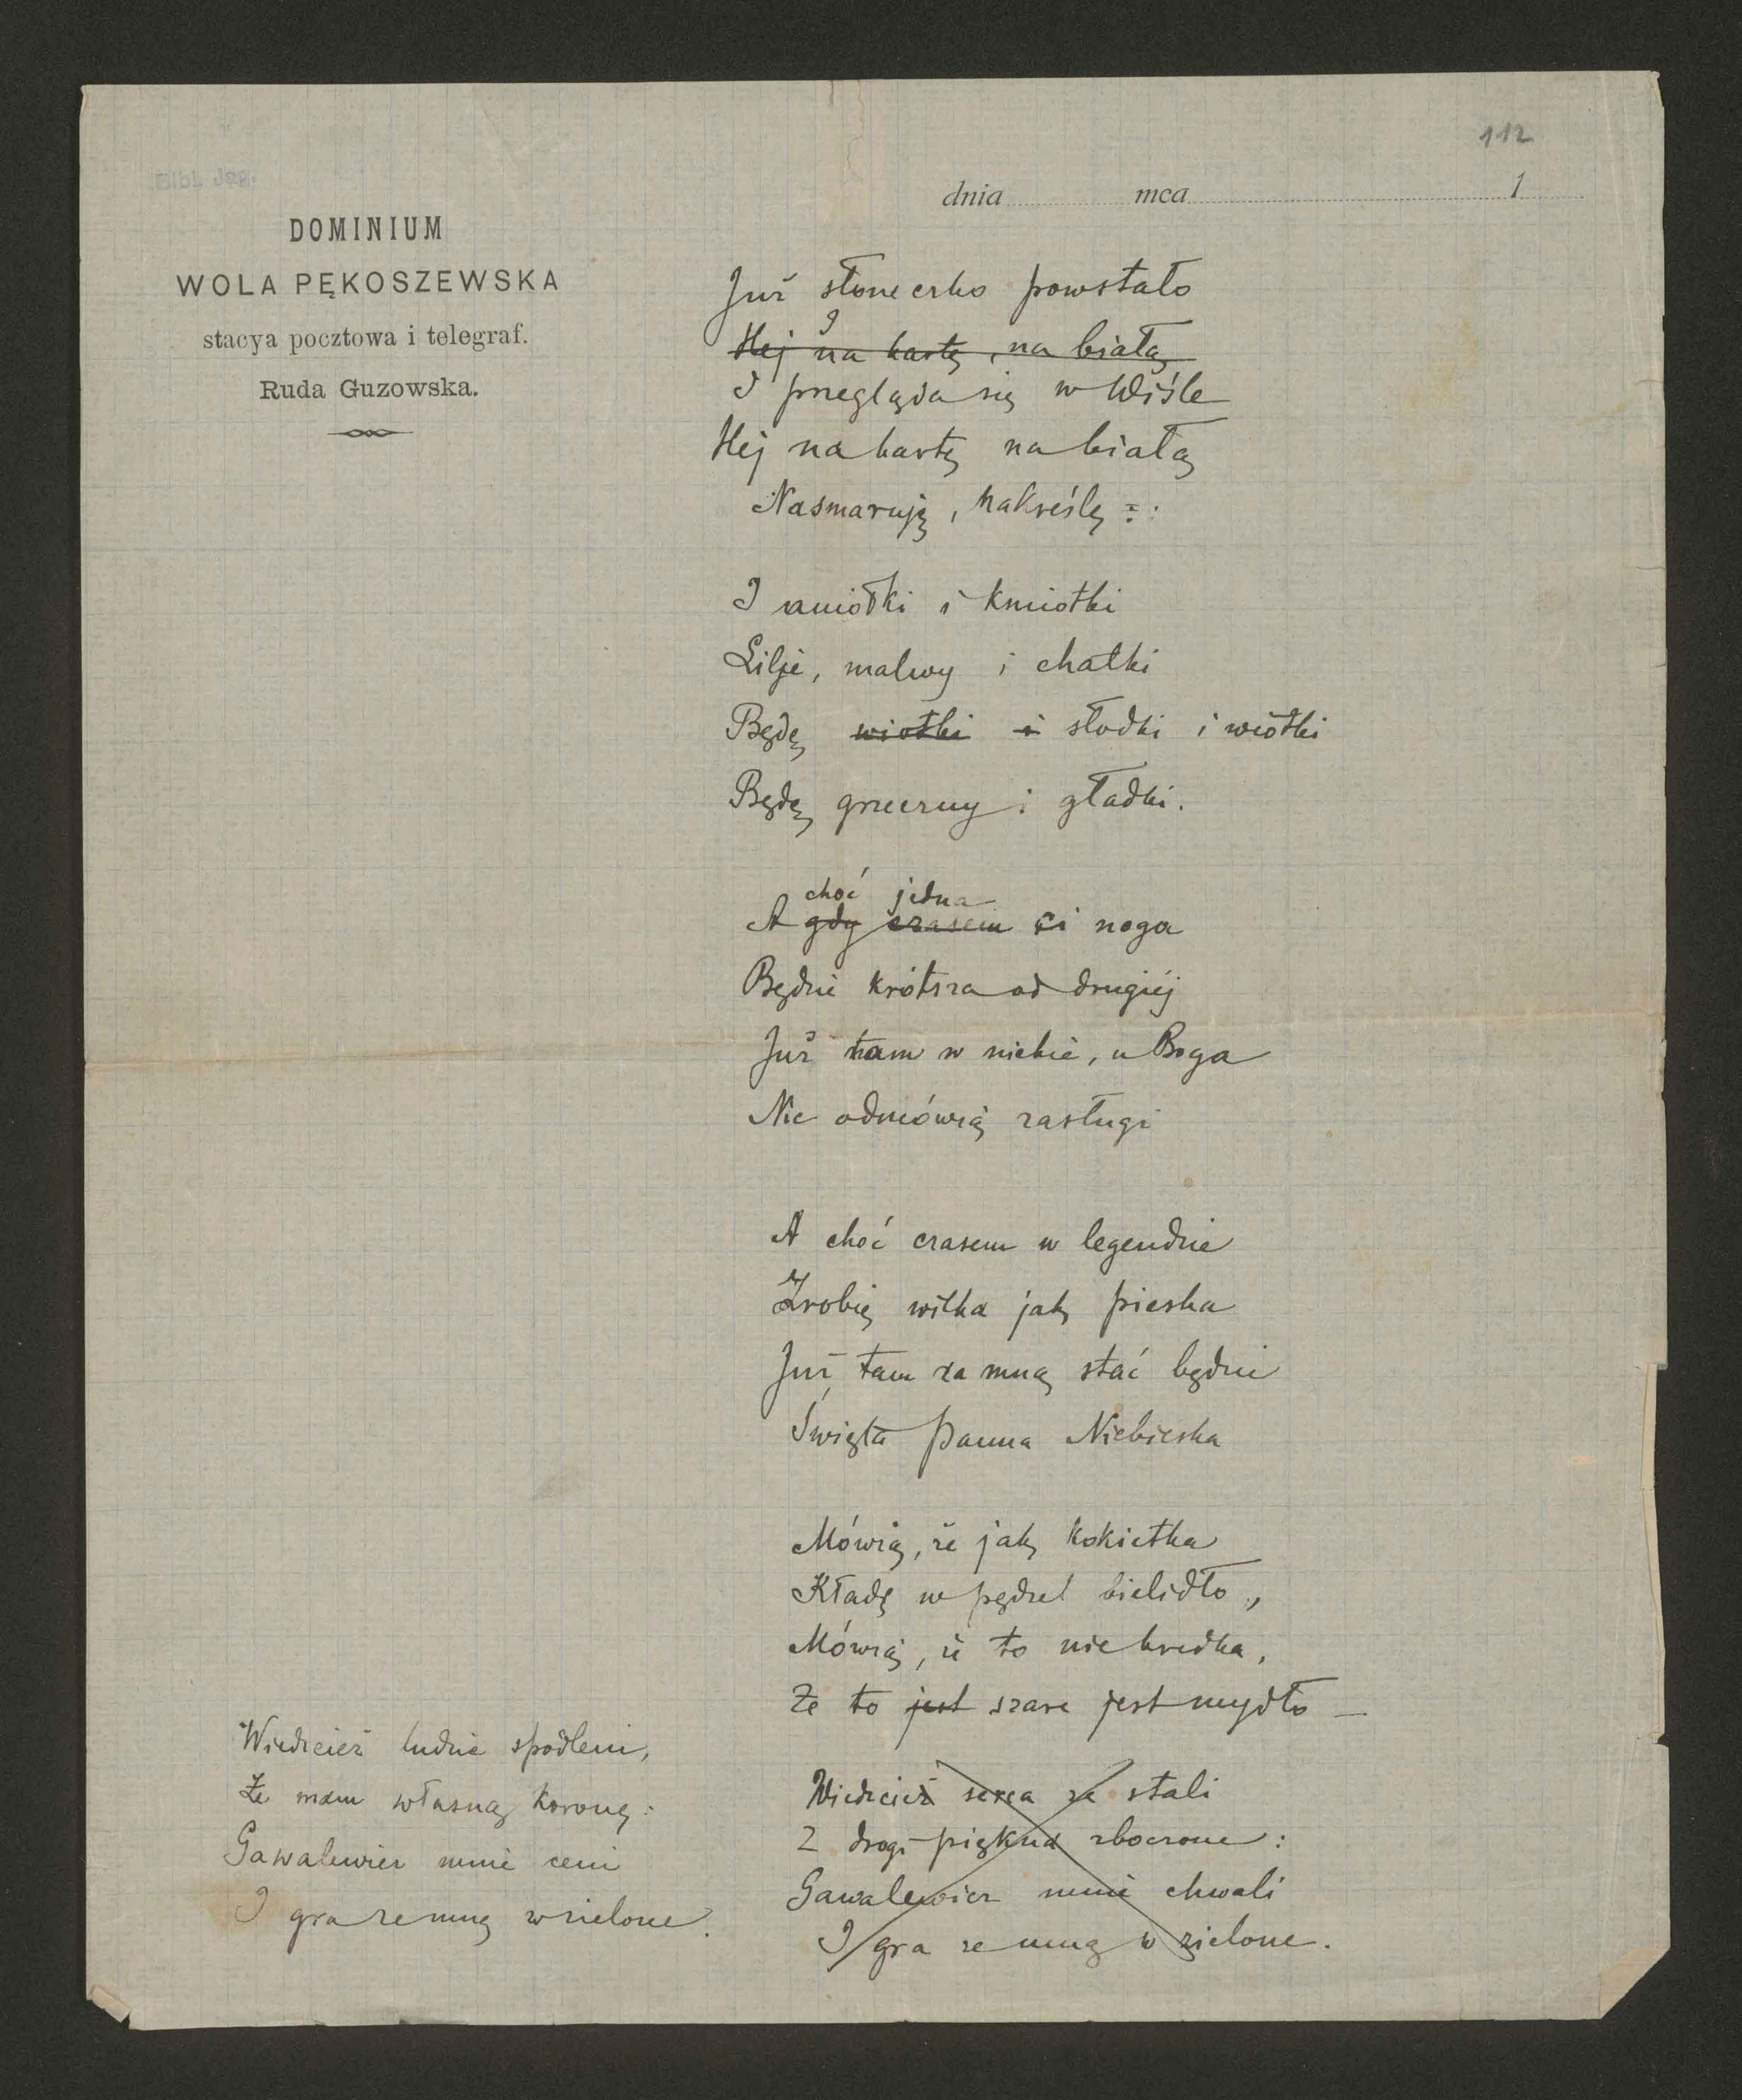 112
Bibl. Jag.
dnia mca 1
DOMINIUM
WOLA PĘKOSZEWSKA
stacya pocztowa i telegraf.
Ruda Guzowska.
Już słoneczko powstało
I
Hej na kartę, na białą
I przegląda się w Wiśle
Hej na kartę na białą
Nasmaruję, nakreślę :
I aniołki i kmiotki
Lilje, malwy i chatki
Będę wiotki i słodki i wiotki
Będę grzeczny i gładki.
choć jedna
A gdy czasem ci noga
Będzie krótsza od drugiéj
Już tam w niebie, u Boga
Nie odmówią zasługi
A choć czasem w legendzie
Zrobię wilka jak pieska
Już tam za mną stać będzie
Święta Panna Niebieska
Mówią, że jak kokietka
Kładę w pędzel bielidło,
Mówią, że to nie kredka,
Że to jest szare jest mydło —
Wiedzcież serca ze stali
Z drogi piękna zboczone :
Gawalewicz mnie chwali
I gra ze mną w zielone.
Wiedzcież ludzie spodleni,
Że mam własną koronę :
Gawalewicz mnie ceni
I gra ze mną w zielone.